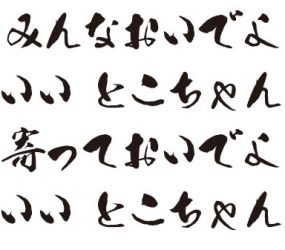 みんなおいでよ
いい とこちゃん
寄っておいでよ
いい とこちゃん